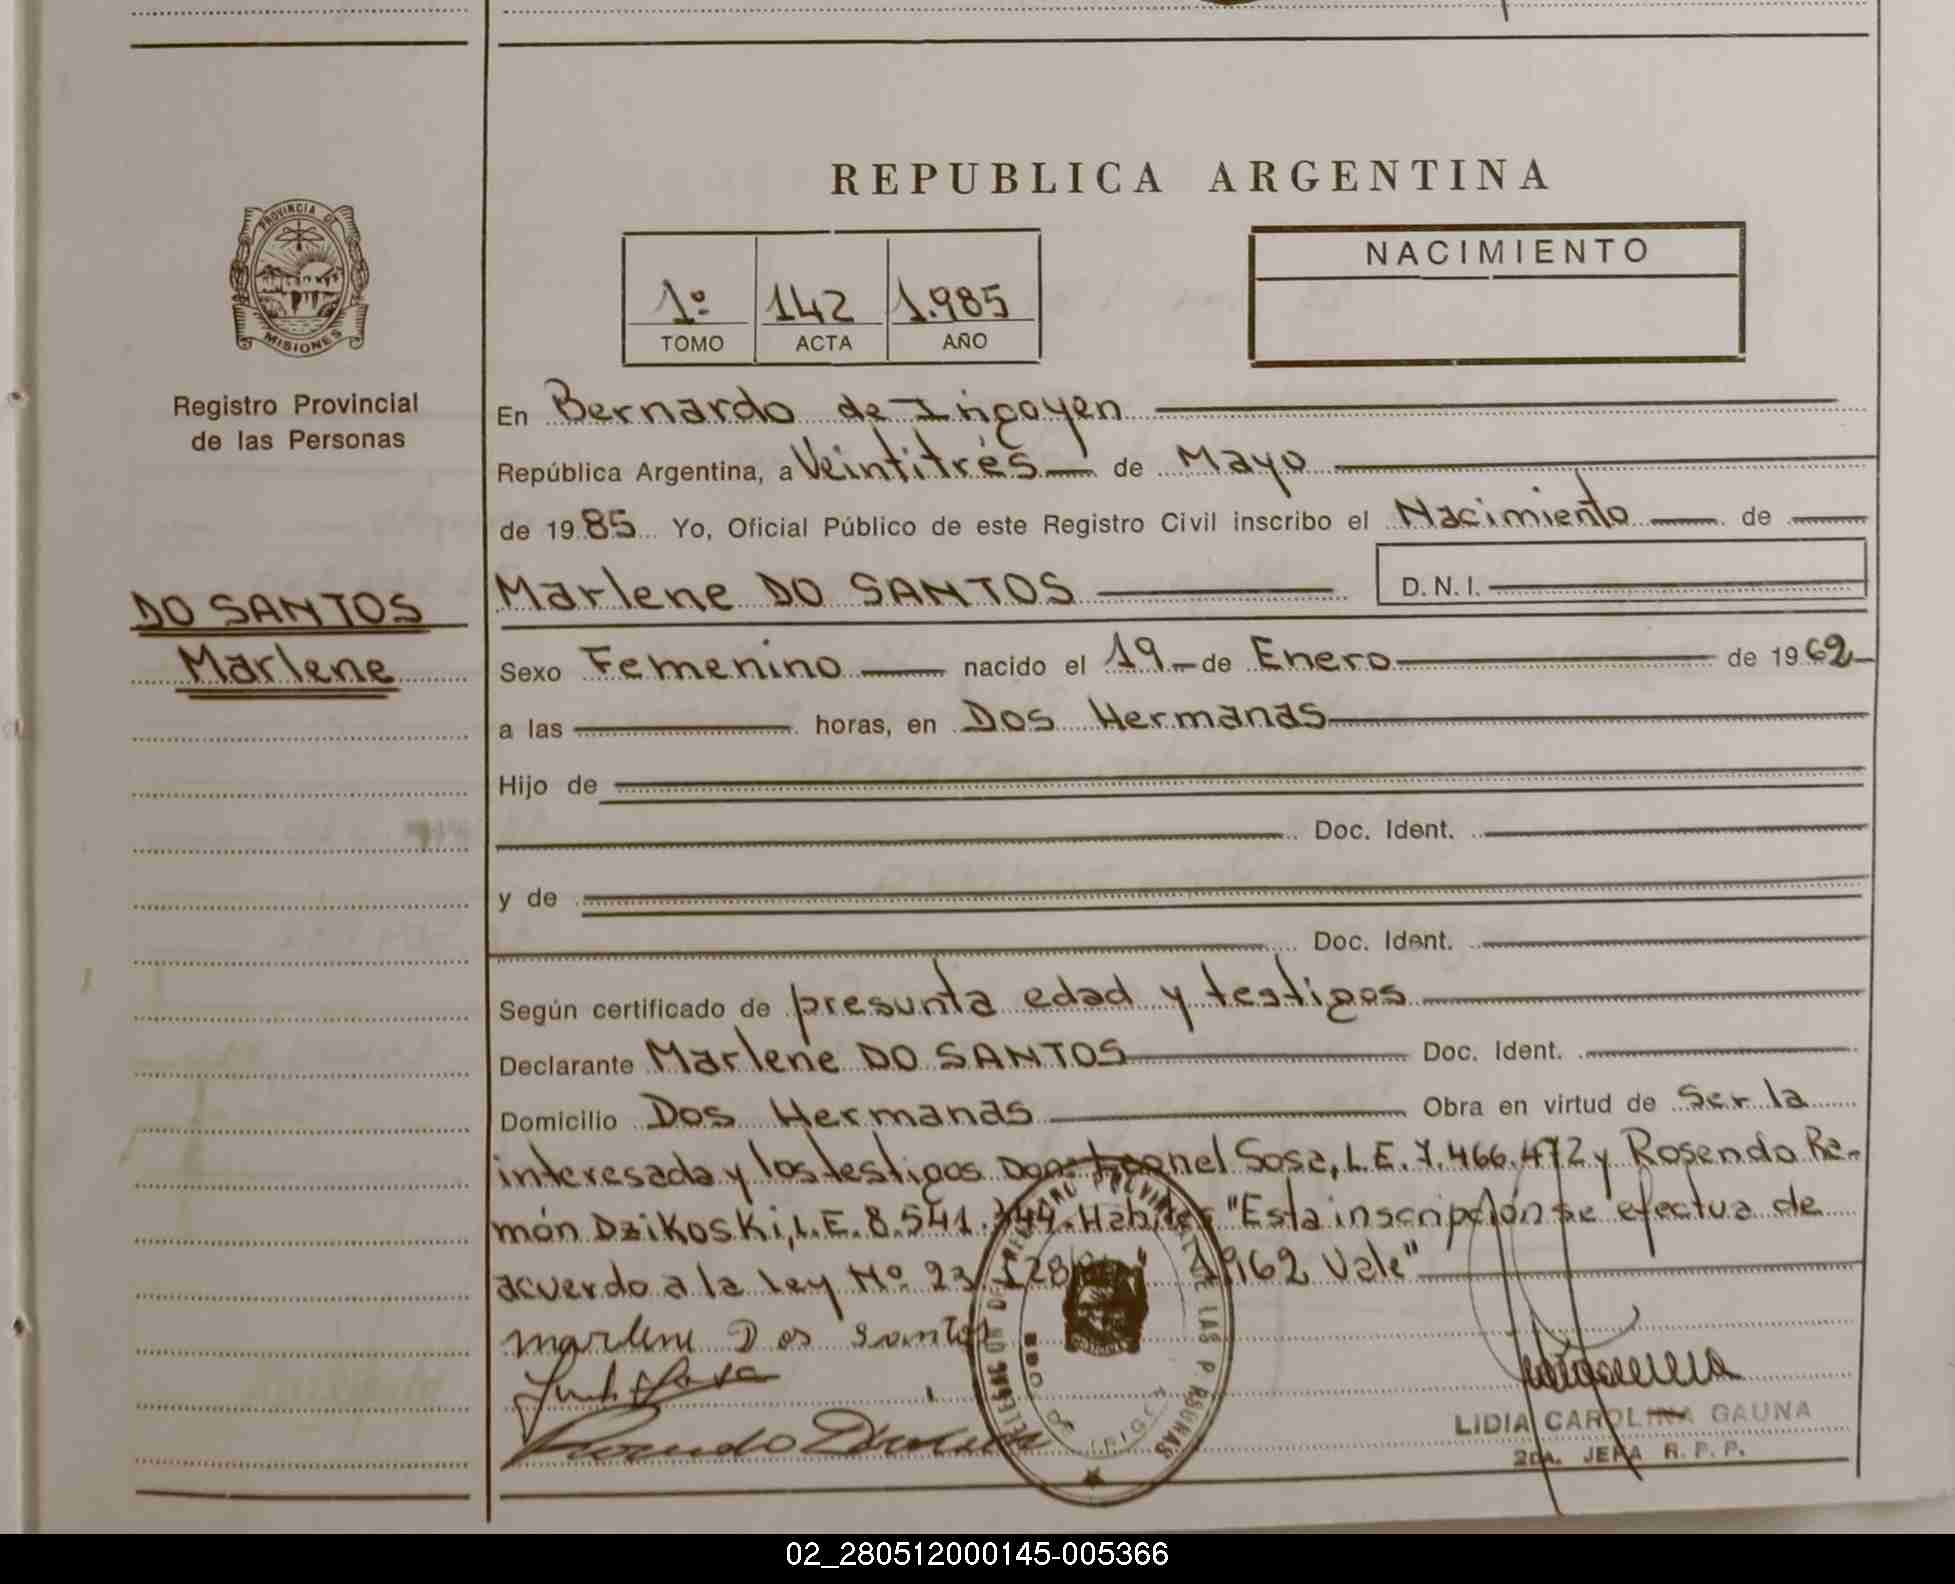 REPUBLICA ARGENTINA
PROVINCIA DE
MISIONES
Registro Provincial
de las Personas
1º 142 1.985
TOMO ACTA AÑO
NACIMIENTO
En Bernardo de Irigoyen
República Argentina, a Veintitrés de Mayo
de 1985 Yo, Oficial Público de este Registro Civil inscribo el Nacimiento de
DO SANTOS
Marlene
Marlene DO SANTOS D.N.I.
Sexo Femenino nacido el 19 de Enero de 1962
a las horas, en Dos Hermanas
Hijo de
Doc. Ident.
y de
Doc. Ident.
Según certificado de presunta edad y testigos
Declarante Marlene DO SANTOS Doc. Ident.
Domicilio Dos Hermanas Obra en virtud de Ser la
interesada y los testigos Sosa, L.E. 7.466.472 y Rosendo Ra-
món Dzikoski, L.E. 8.541.344. "Esta inscripción se efectua de
acuerdo a la ley Nº 23 1962 Vale"
marlene Dos Santos
Rosendo
LIDIA CAROLINA GAUNA
2da. JEFA R.P.P.
02_280512000145-005366